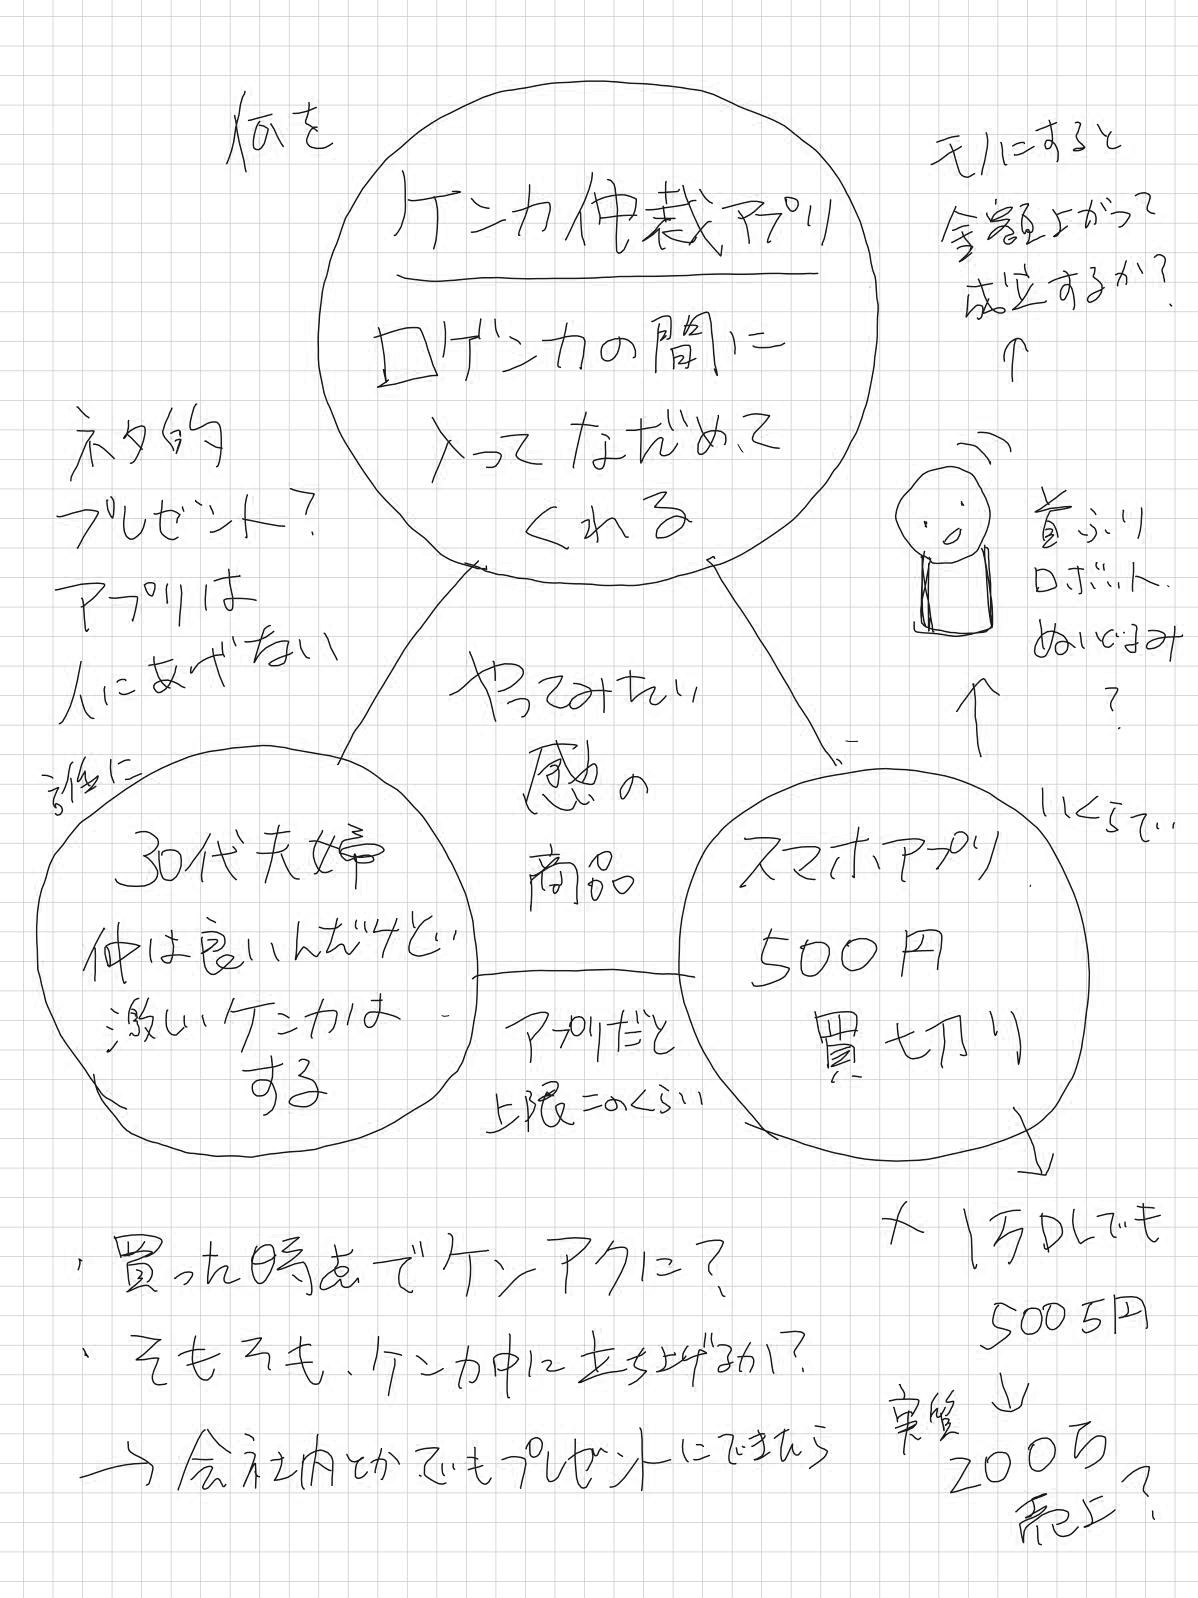 何を
ケンカ仲裁アプリ
口ゲンカの間に
入ってなだめて
くれる
モノにすると
金額上がって
成立するか?
↑
ネタ的
プレゼント?
アプリは
人にあげない
首ふり
ロボット
ぬいぐるみ
?
↑
やってみたい
感の
商品
誰に
30代夫婦
仲は良いんだけど
激しいケンカは
する
いくらで
スマホアプリ
500円
買い切り
アプリだと
上限このくらい
↓
× 1万DLでも
500万円
↓
実質
200万
売上?
・買った時点でケンアクに?
・そもそも、ケンカ中に立ち上げるか?
→会社内とかでもプレゼントにできたら